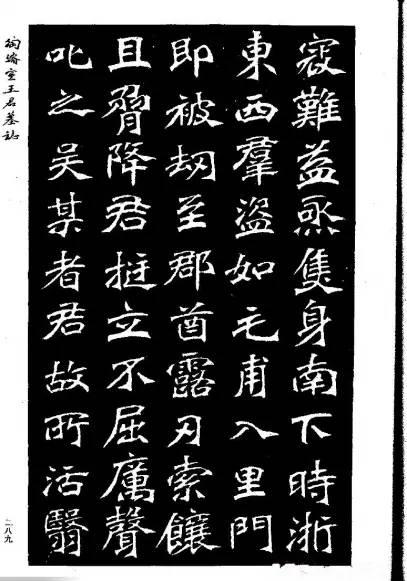 寇難益亟隻身南下時浙
東西羣盜如毛甫入里門
即被刼至郡酋露刃索饟
且脅降君挺立不屈厲聲
叱之吴某者君故所活醫
室王君墓誌
二八九